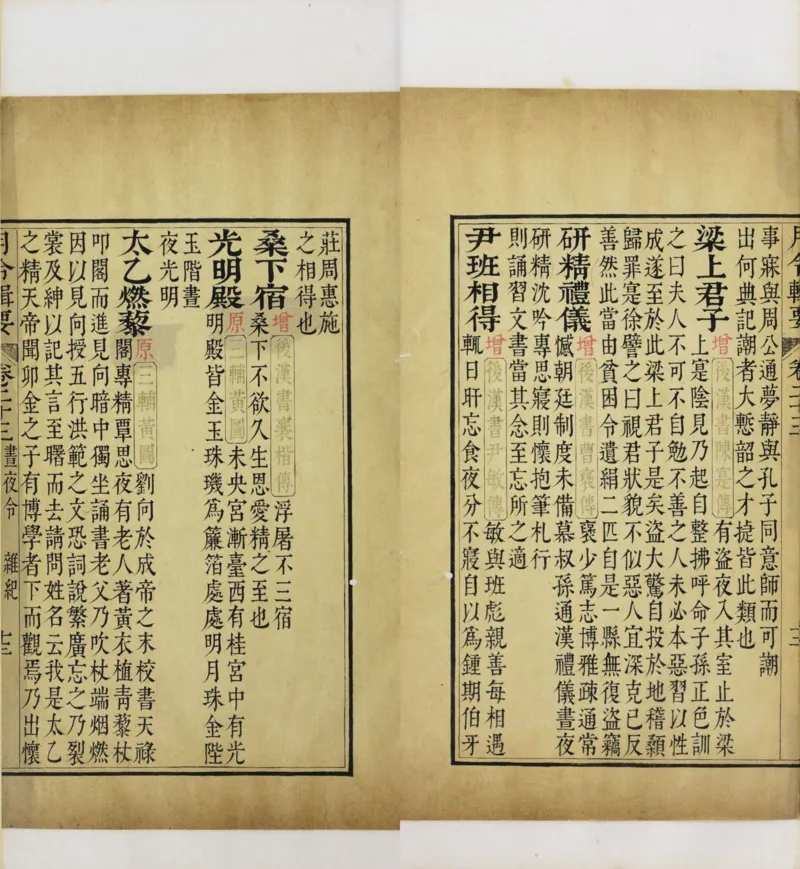 月令輯要 卷二十三
事寐與周公通夢靜與孔子同意師而可謿
出何典記謿者大慙韶之才㨗皆此類也
梁上君子 增 後漢書陳寔傳 有盜夜入其室止於梁
上寔陰見乃起自整拂呼命子孫正色訓
之曰夫人不可不自勉不善之人未必本惡習以性
成遂至於此梁上君子是矣盜大驚自投於地稽顙
歸罪寔徐譬之曰視君狀貌不似惡人宜深克己反
善然此當由貧困令遺絹二匹自是一縣無復盜竊
研精禮儀 增 後漢書曹褒傳 褒少篤志博雅疎通常
憾朝廷制度未備慕叔孫通漢禮儀晝夜
研精沈吟專思寢則懷抱筆札行
則誦習文書當其念至忘所之適
尹班相得 增 後漢書尹敏傳 敏與班彪親善每相遇
輒日旰忘食夜分不寢自以爲鍾期伯牙
莊周惠施
之相得也
桑下宿 增 後漢書襄楷傳 浮屠不三宿
桑下不欲久生恩愛精之至也
光明殿 原 三輔黃圖 未央宮漸臺西有桂宮中有光
明殿皆金玉珠璣爲簾箔處處明月珠金陛
玉階晝
夜光明
太乙燃藜 原 三輔黃圖 劉向於成帝之末校書天祿
閣專精覃思夜有老人著黃衣植青藜杖
叩閣而進見向暗中獨坐誦書老父乃吹杖端烟燃
因以見向授五行洪範之文恐詞說繁廣忘之乃裂
裳及紳以記其言至曙而去請問姓名云我是太乙
之精天帝聞卯金之子有博學者下而觀焉乃出懷
月令輯要 卷二十三 晝夜令 雜紀 十三